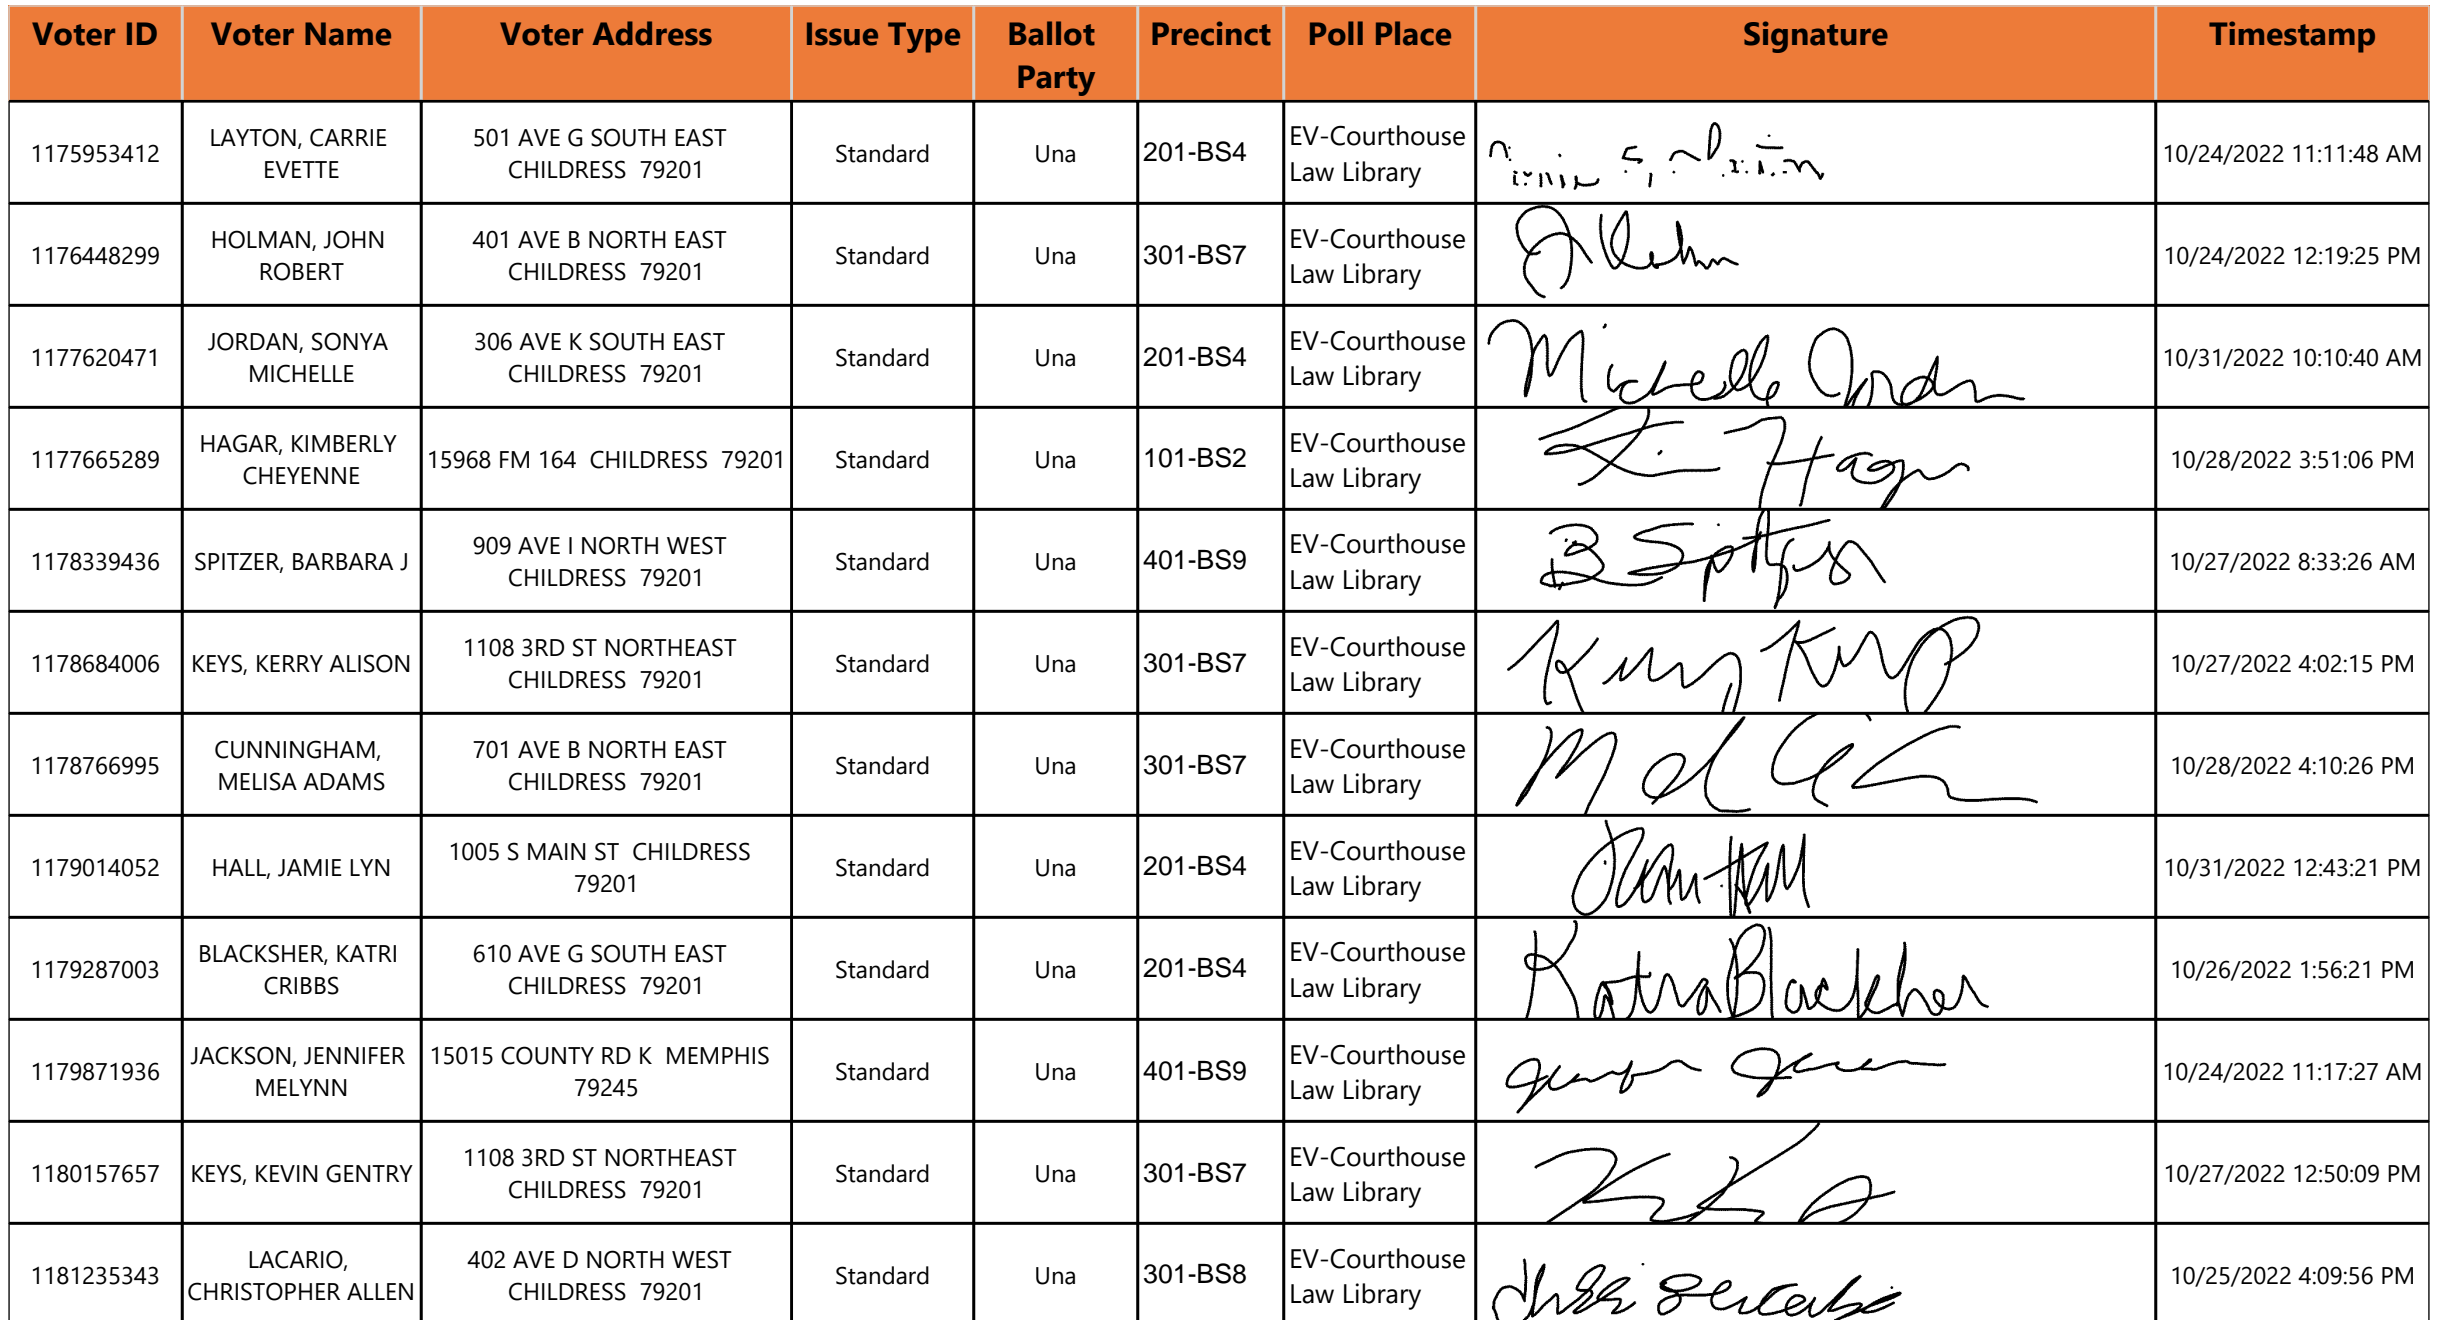 Voter ID Voter Name Voter Address Issue Type Ballot Party Precinct Poll Place Signature Timestamp
1175953412 LAYTON, CARRIE EVETTE 501 AVE G SOUTH EAST CHILDRESS 79201 Standard Una 201-BS4 EV-Courthouse Law Library 10/24/2022 11:11:48 AM
1176448299 HOLMAN, JOHN ROBERT 401 AVE B NORTH EAST CHILDRESS 79201 Standard Una 301-BS7 EV-Courthouse Law Library 10/24/2022 12:19:25 PM
1177620471 JORDAN, SONYA MICHELLE 306 AVE K SOUTH EAST CHILDRESS 79201 Standard Una 201-BS4 EV-Courthouse Law Library Michelle Jordan 10/31/2022 10:10:40 AM
1177665289 HAGAR, KIMBERLY CHEYENNE 15968 FM 164 CHILDRESS 79201 Standard Una 101-BS2 EV-Courthouse Law Library Kim Hagar 10/28/2022 3:51:06 PM
1178339436 SPITZER, BARBARA J 909 AVE I NORTH WEST CHILDRESS 79201 Standard Una 401-BS9 EV-Courthouse Law Library B Spitzer 10/27/2022 8:33:26 AM
1178684006 KEYS, KERRY ALISON 1108 3RD ST NORTHEAST CHILDRESS 79201 Standard Una 301-BS7 EV-Courthouse Law Library 10/27/2022 4:02:15 PM
1178766995 CUNNINGHAM, MELISA ADAMS 701 AVE B NORTH EAST CHILDRESS 79201 Standard Una 301-BS7 EV-Courthouse Law Library 10/28/2022 4:10:26 PM
1179014052 HALL, JAMIE LYN 1005 S MAIN ST CHILDRESS 79201 Standard Una 201-BS4 EV-Courthouse Law Library 10/31/2022 12:43:21 PM
1179287003 BLACKSHER, KATRI CRIBBS 610 AVE G SOUTH EAST CHILDRESS 79201 Standard Una 201-BS4 EV-Courthouse Law Library 10/26/2022 1:56:21 PM
1179871936 JACKSON, JENNIFER MELYNN 15015 COUNTY RD K MEMPHIS 79245 Standard Una 401-BS9 EV-Courthouse Law Library 10/24/2022 11:17:27 AM
1180157657 KEYS, KEVIN GENTRY 1108 3RD ST NORTHEAST CHILDRESS 79201 Standard Una 301-BS7 EV-Courthouse Law Library 10/27/2022 12:50:09 PM
1181235343 LACARIO, CHRISTOPHER ALLEN 402 AVE D NORTH WEST CHILDRESS 79201 Standard Una 301-BS8 EV-Courthouse Law Library 10/25/2022 4:09:56 PM